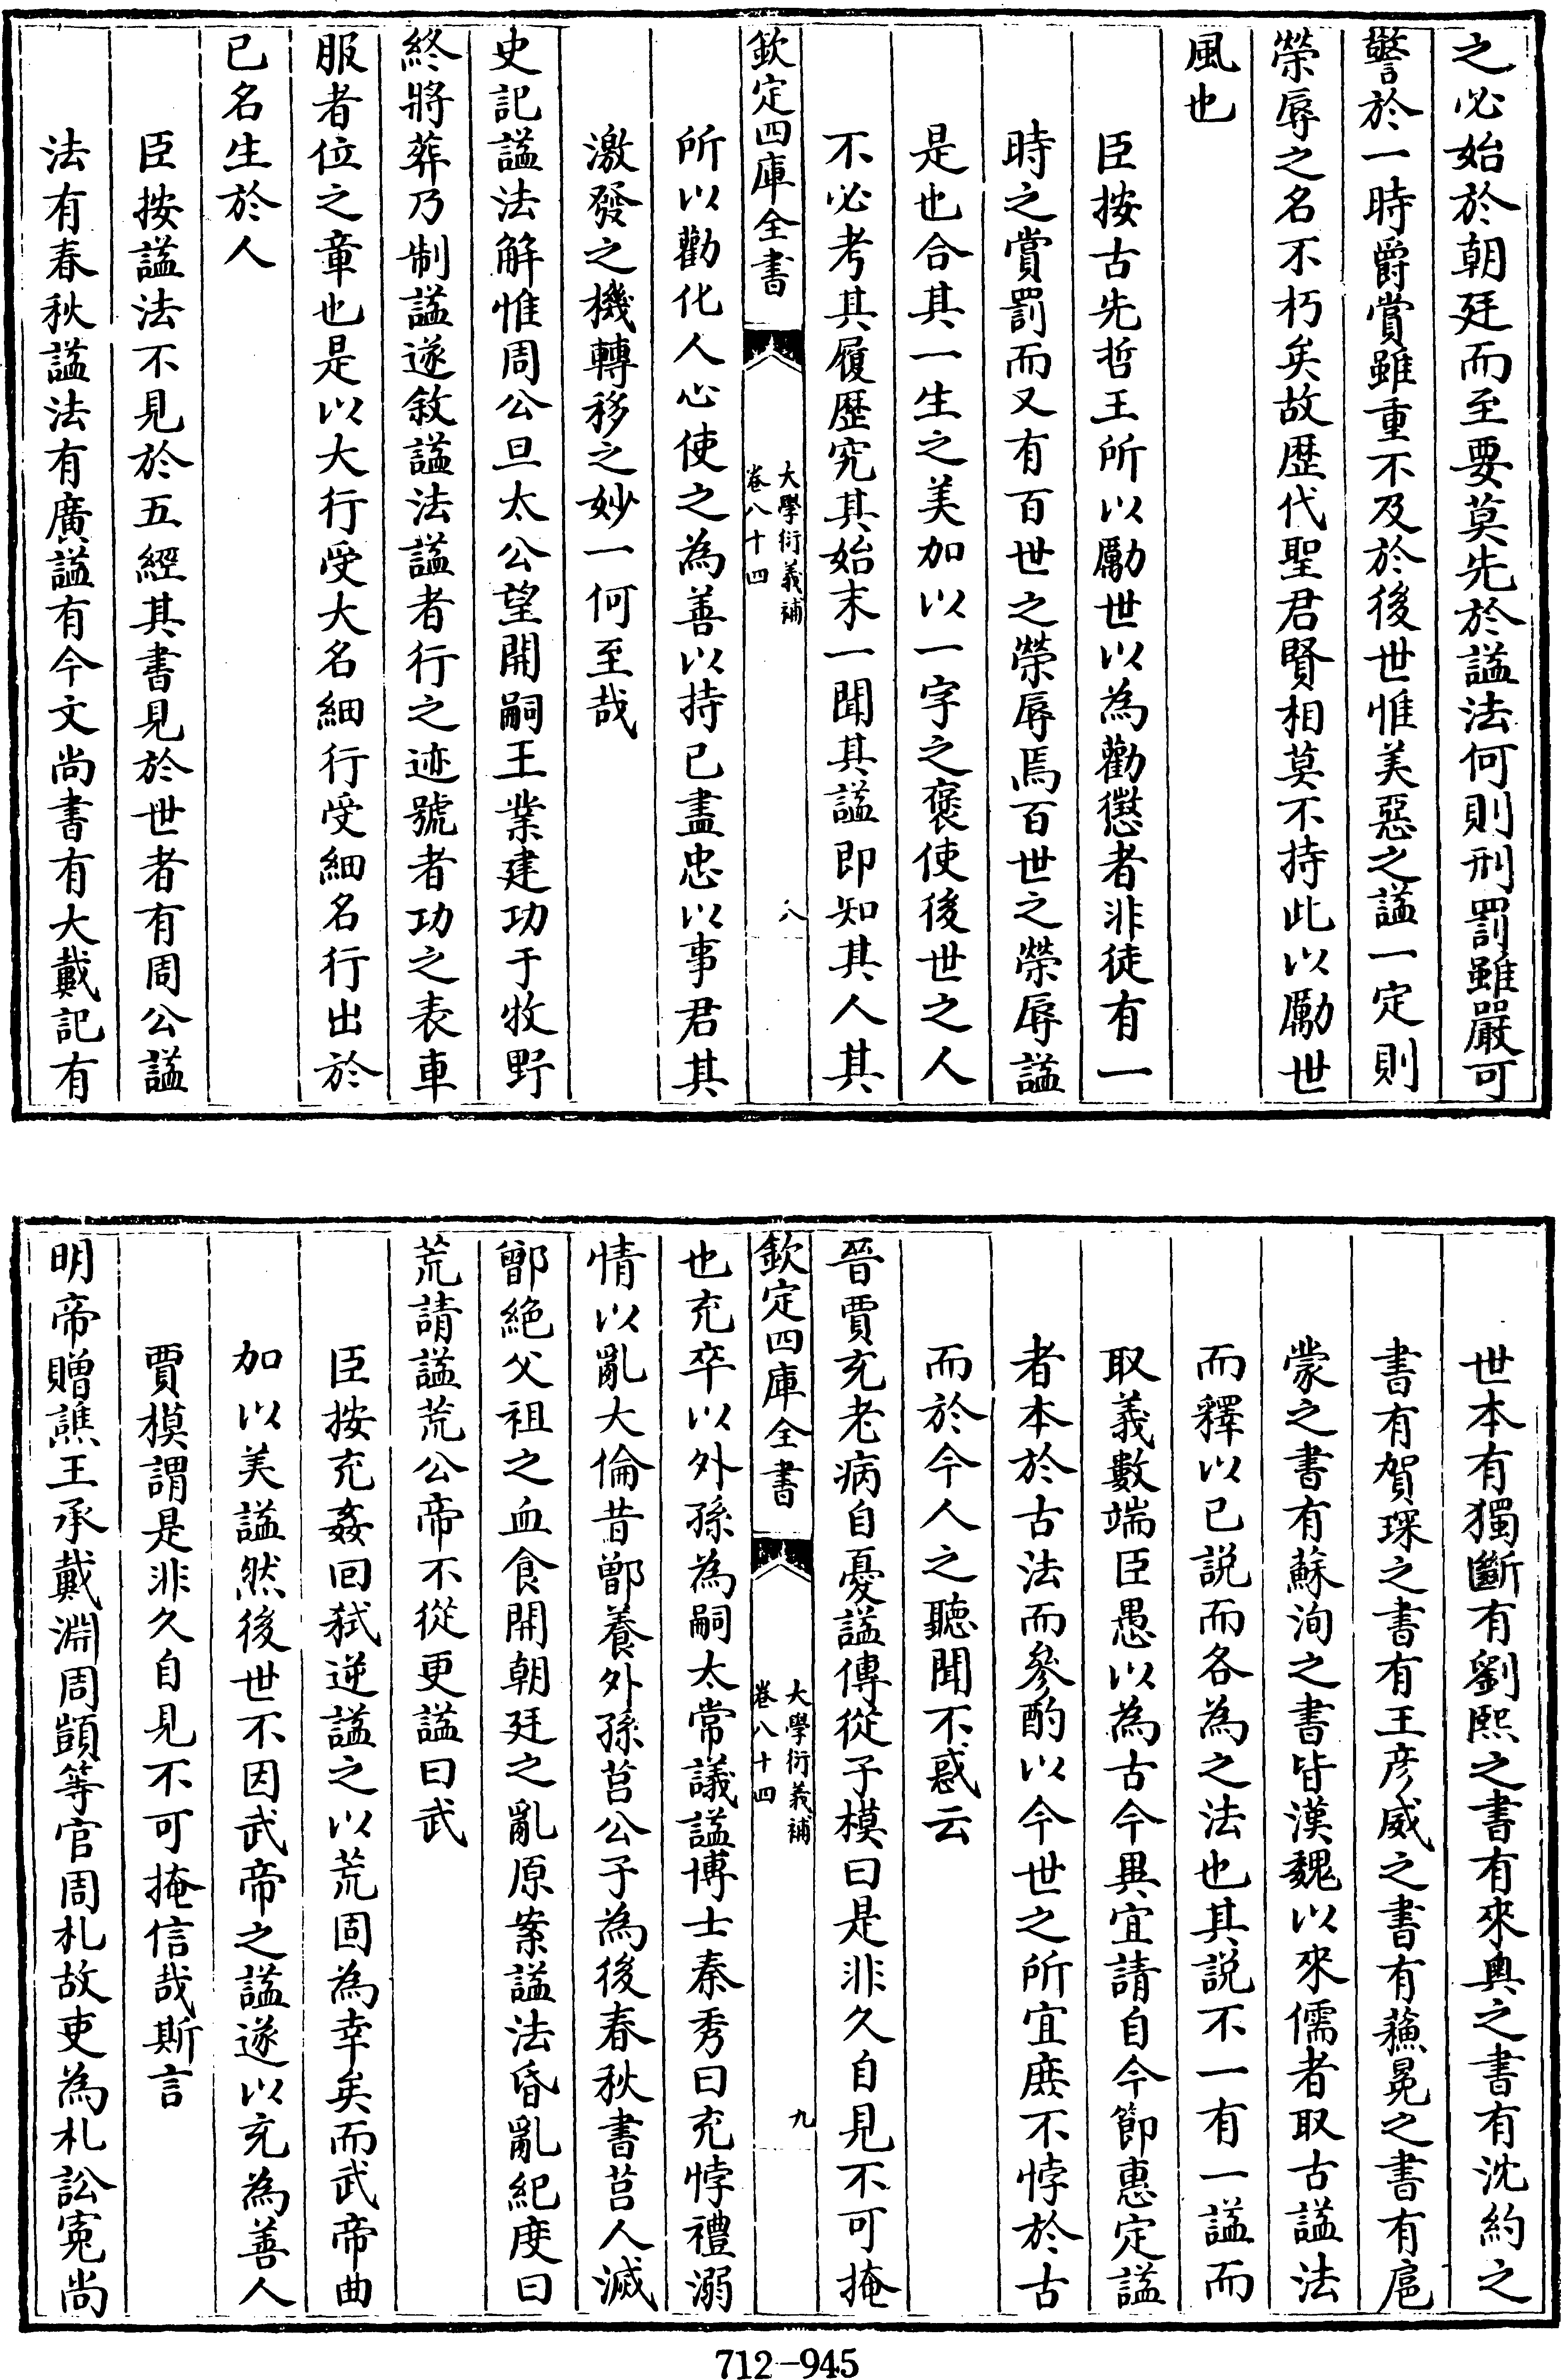 之必始於朝廷而至要莫先於諡法何則刑罰雖嚴可
警於一時爵賞雖重不及於後世惟美惡之諡一定則
榮辱之名不朽矣故歴代聖君賢相莫不持此以勵世
風也
臣按古先哲王所以勵世以為勸懲者非徒有一
時之賞罰而又有百世之榮辱焉百世之榮辱諡
是也合其一生之美加以一字之褒使後世之人
不必考其履歴究其始末一聞其諡即知其人其
欽定四庫全書
大學衍義補
卷八十四
八
所以勸化人心使之為善以持已盡忠以事君其
激發之機轉移之妙一何至哉
史記諡法解惟周公旦太公望開嗣王業建功于牧野
終將葬乃制諡遂敘諡法諡者行之迹號者功之表車
服者位之章也是以大行受大名細行受細名行出於
已名生於人
臣按諡法不見於五經其書見於世者有周公諡
法有春秋諡法有廣諡有今文尚書有大戴記有
世本有獨斷有劉熙之書有來奥之書有沈約之
書有賀琛之書有王彦威之書有蘓冕之書有扈
蒙之書有蘇洵之書皆漢魏以來儒者取古諡法
而釋以已説而各為之法也其説不一有一諡而
取義數端臣愚以為古今異宜請自今節惠定諡
者本於古法而參酌以今世之所宜庶不悖於古
而於今人之聽聞不惑云
晉賈充老病自憂諡傳從子模曰是非久自見不可掩
欽定四庫全書
大學衍義補
卷八十四
九
也充卒以外孫為嗣太常議諡博士秦秀曰充悖禮溺
情以亂大倫昔鄫養外孫莒公子為後春秋書莒人滅
鄫絶父祖之血食開朝廷之亂原案諡法昏亂紀度曰
荒請諡荒公帝不從更諡曰武
臣按充姦回弑逆諡之以荒固為幸矣而武帝曲
加以美諡然後世不因武帝之諡遂以充為善人
賈模謂是非久自見不可掩信哉斯言
明帝贈譙王承戴淵周顗等官周札故吏為札訟寃尚
712-945